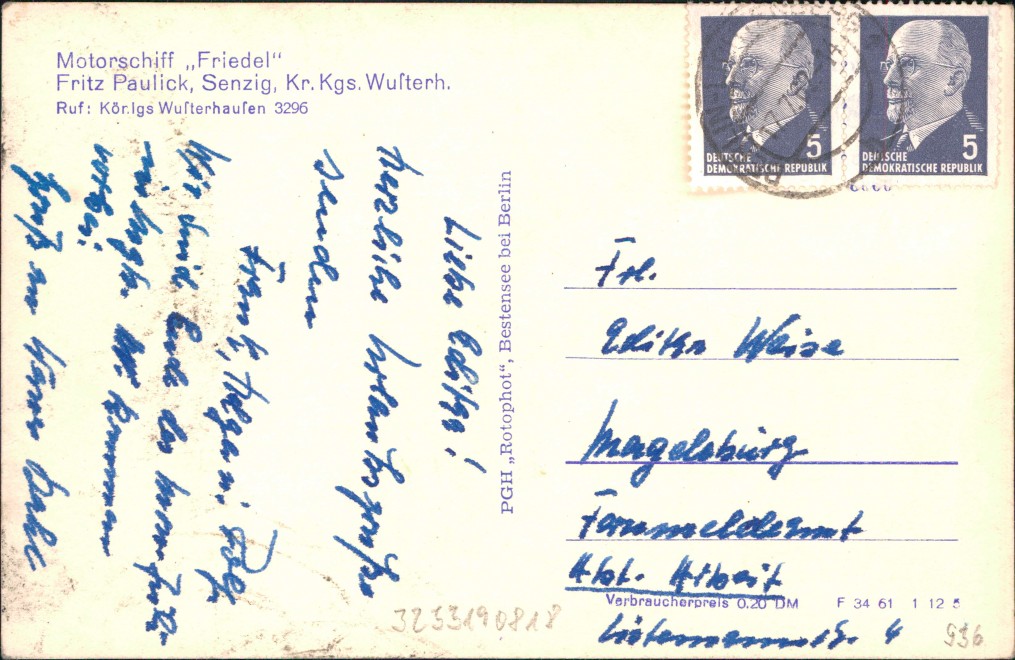 Motorschiff „Friedel“
Fritz Paulick, Senzig, Kr. Kgs. Wuſterh.
Ruf: Kön.igs Wuſterhauſen 3296
Liebe Editha!
herzliche Urlaubsgrüße
senden
Frank, Helga u. Rolf
Wir sind Ende des
vorbei. Wir kommen
Gruß an
PGH „Rotophot“, Bestensee bei Berlin
DEUTSCHE
DEMOKRATISCHE REPUBLIK
5
DEUTSCHE
DEMOKRATISCHE REPUBLIK
5
Frl.
Editha Weise
Magdeburg
Fernmeldeamt
Abt. Arbeit
Verbraucherpreis 0.20 DM F 34 61 1 12 5
4
3233190818
936